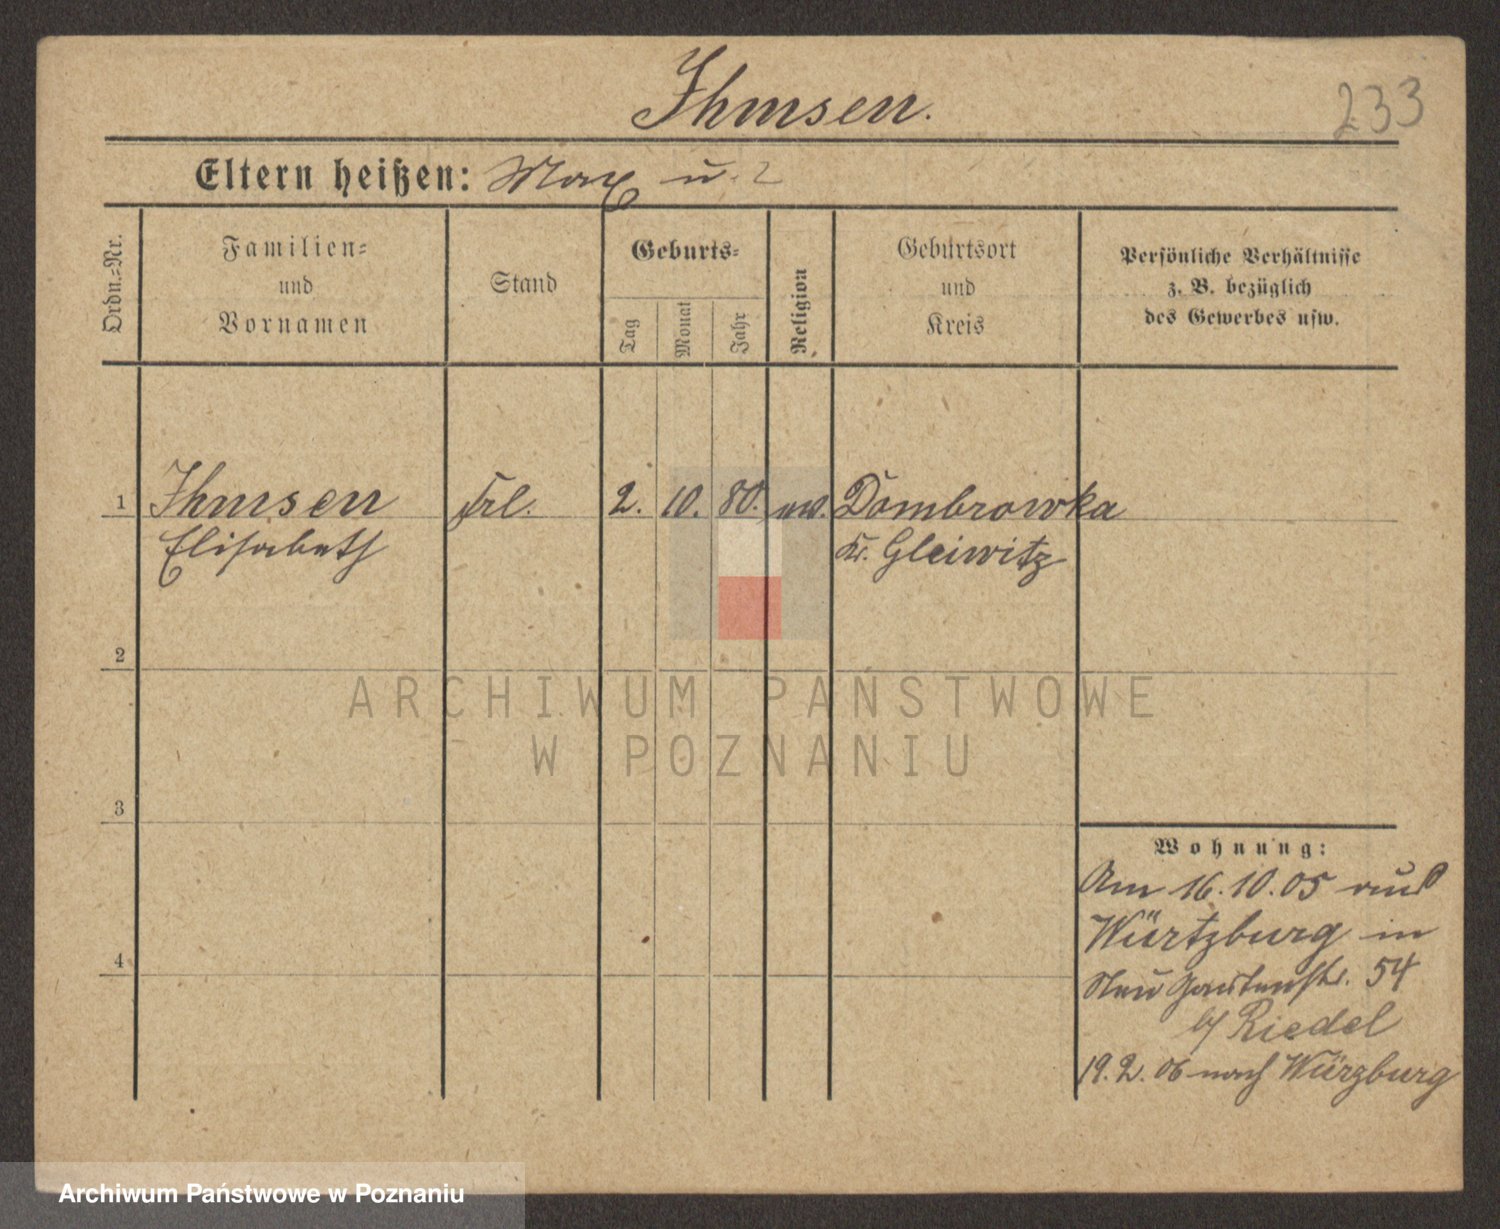 Ihmsen.
233
Eltern heißen: Max u. ?
Ordn.-Nr.
Familien-
und
Vornamen
Stand
Geburts-
Tag
Monat
Jahr
Religion
Geburtsort
und
Kreis
Persönliche Verhältnisse
z. B. bezüglich
des Gewerbes usw.
1 Ihmsen Frl. 2. 10. 80. ev. Dombrowka
Elisabeth Kr. Gleiwitz
2
ARCHIWUM PAŃSTWOWE
W POZNANIU
3
Wohnung:
Am 16.10.05 aus
Würtzburg in
4
Neu Gartenstr. 54
b/ Riedel
19.2.06 nach Würzburg
Archiwum Państwowe w Poznaniu